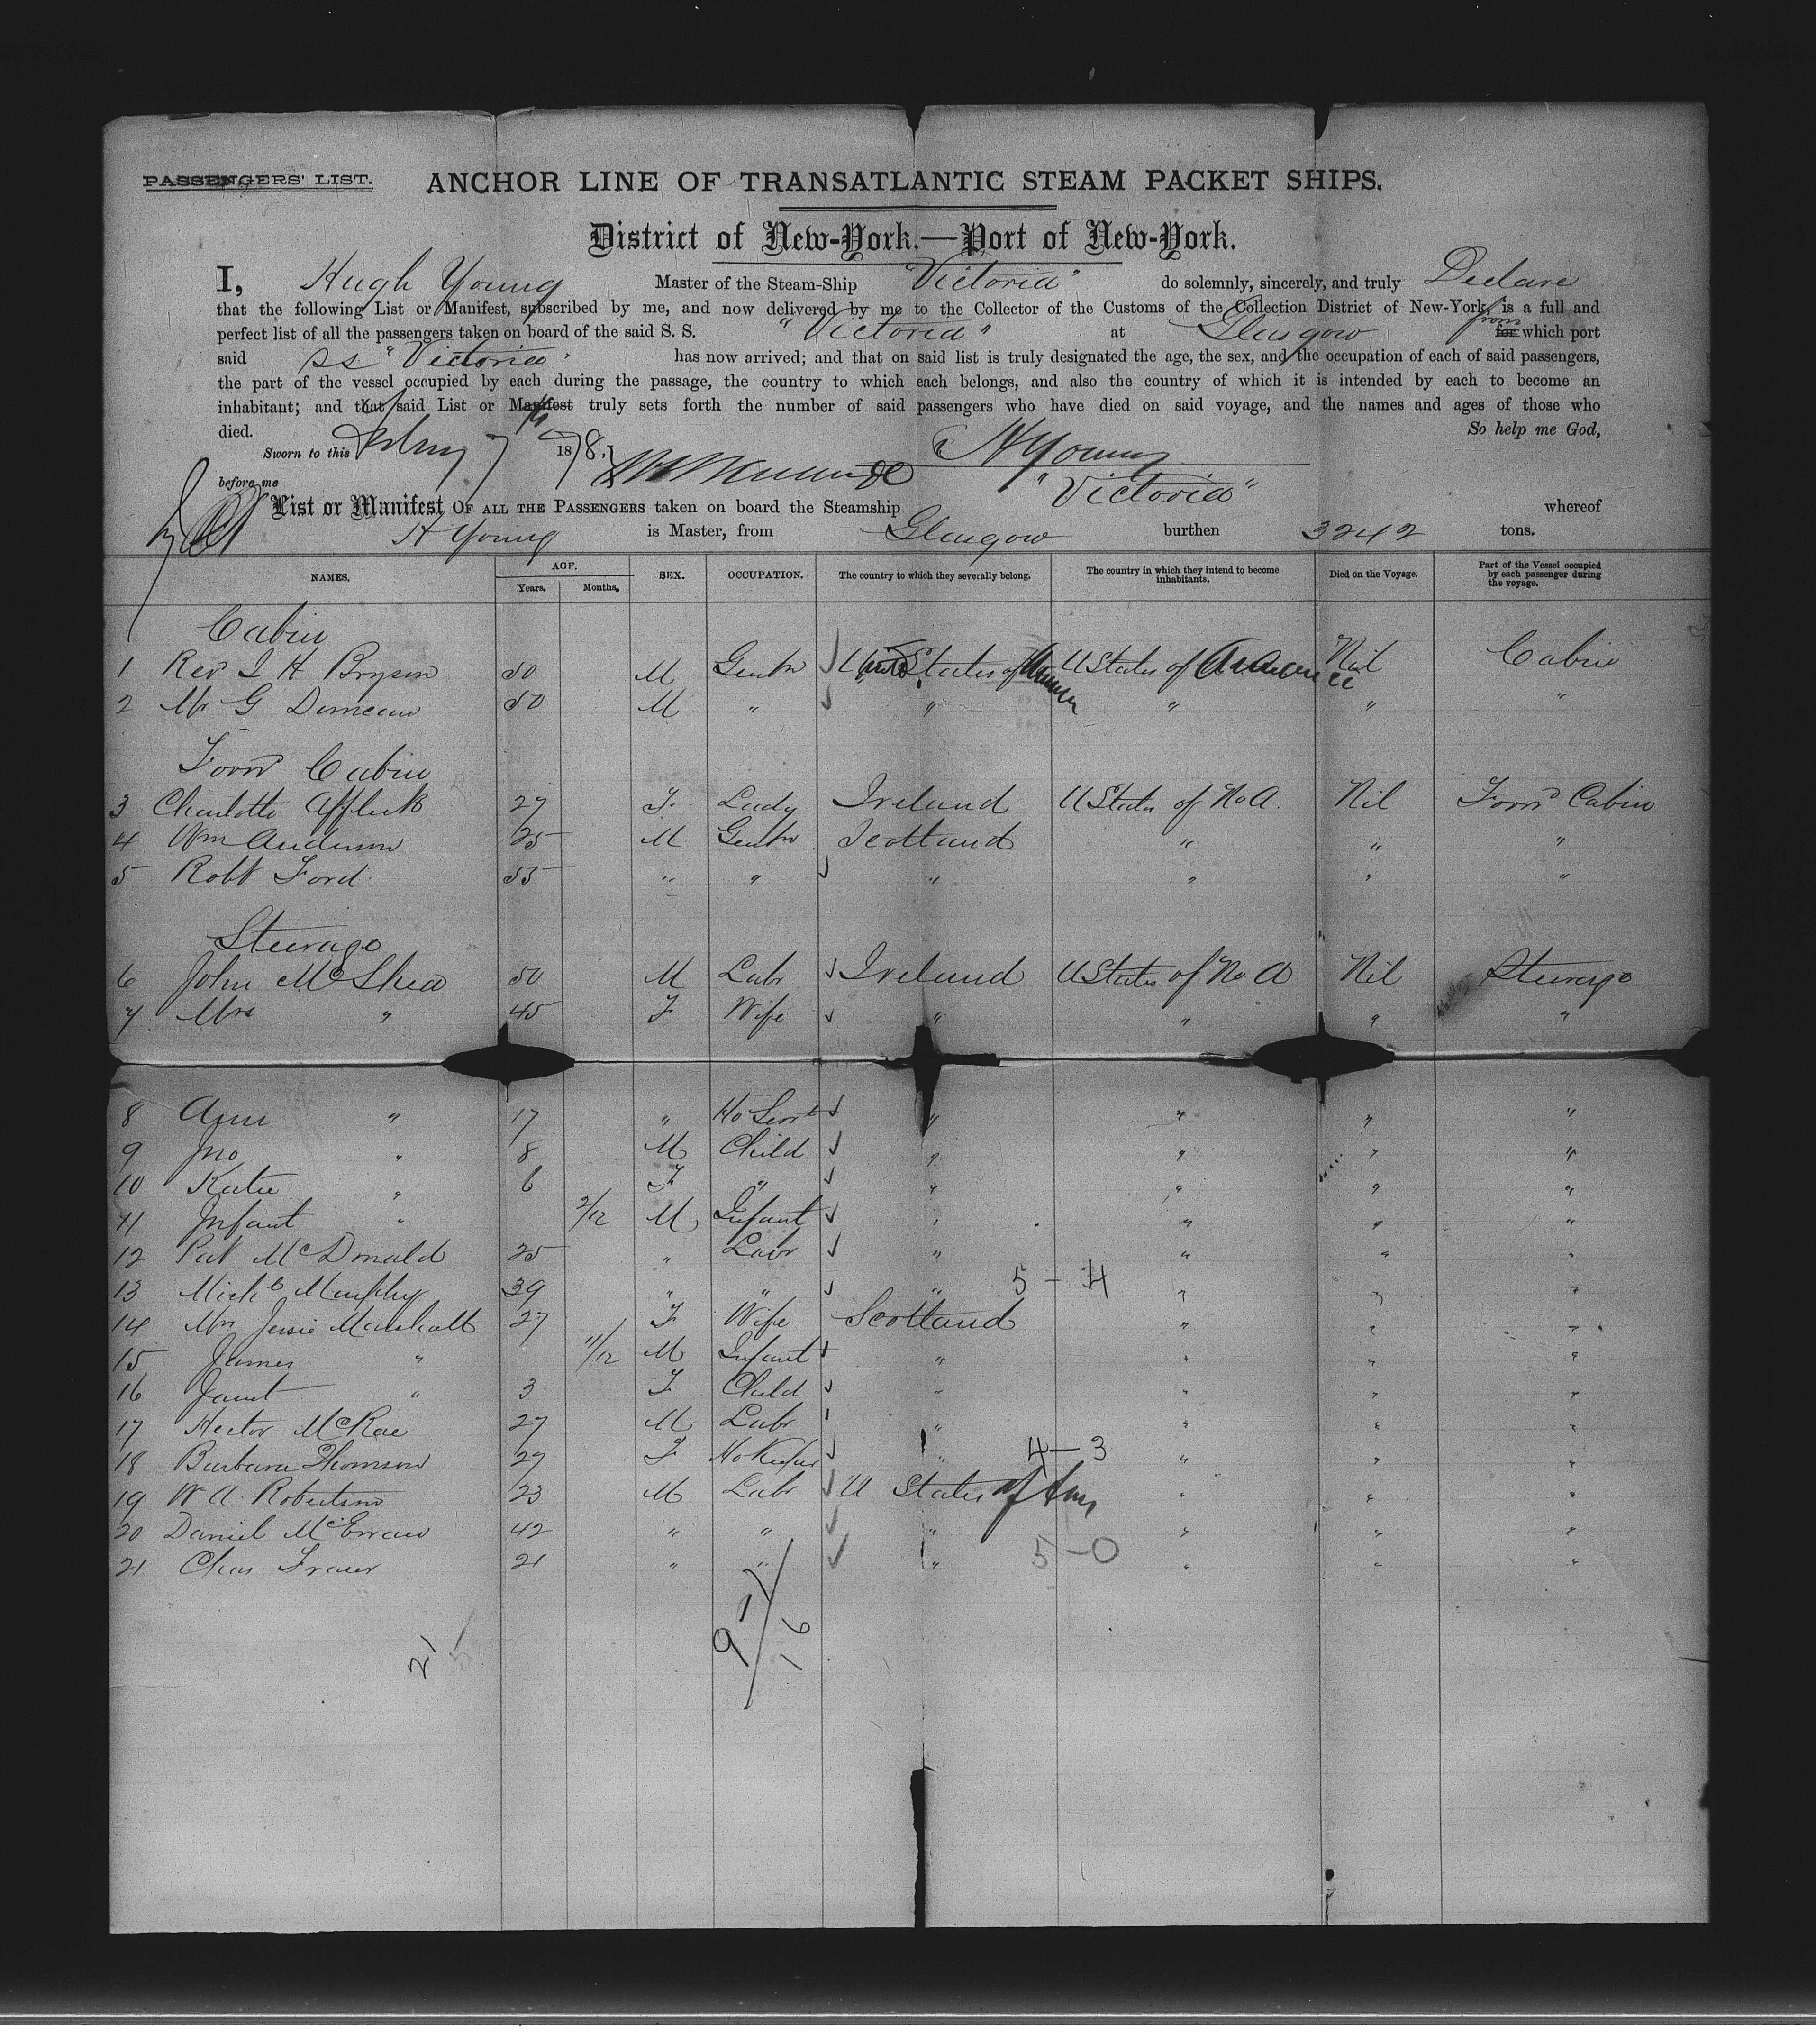 PASSENGERS' LIST.
ANCHOR LINE OF TRANSATLANTIC STEAM PACKET SHIPS.
District of New-York.—Port of New-York.
I, Hugh Young Master of the Steam-Ship "Victoria" do solemnly, sincerely, and truly Declare
that the following List or Manifest, subscribed by me, and now delivered by me to the Collector of the Customs of the Collection District of New-York, is a full and
perfect list of all the passengers taken on board of the said S. S. "Victoria" at Glasgow from for which port
said SS "Victoria" has now arrived; and that on said list is truly designated the age, the sex, and the occupation of each of said passengers,
the part of the vessel occupied by each during the passage, the country to which each belongs, and also the country of which it is intended by each to become an
inhabitant; and that said List or Manifest truly sets forth the number of said passengers who have died on said voyage, and the names and ages of those who
died. So help me God,
Sworn to this Feby 7th 1878, H Young
before me
List or Manifest OF ALL THE PASSENGERS taken on board the Steamship "Victoria" whereof
H Young is Master, from Glasgow burthen 3242 tons.
NAMES. AGE. Years. Months. SEX. OCCUPATION. The country to which they severally belong. The country in which they intend to become inhabitants. Died on the Voyage. Part of the Vessel occupied by each passenger during the voyage.
Cabin
1 Rev J H Bryson 50 M Gentn United States of America U States of America Nil Cabin
2 Mr G Duncan 50 M " " " " "
Forwd Cabin
3 Charlotte Affleck 27 F Lady Ireland U States of No A. Nil Forwd Cabin
4 Wm Anderson 25 M Gentn Scotland " " "
5 Robt Ford 55 " " " " " "
Steerage
6 John McShea 50 M Labr Ireland U States of No A Nil Steerage
7 Mrs " 45 F Wife " " " "
8 Ann " 17 " Ho Servt " " " "
9 Jno " 8 M Child " " " "
10 Katie " 6 F " " " " "
11 Infant " 2/12 M Infant " " " "
12 Pat McDonald 25 " Labr " " " "
13 Michl Murphy 39 " " " 5-4 " " "
14 Mrs Jessie Marshall 27 F Wife Scotland " " "
15 James " 11/12 M Infant " " " "
16 Janet " 3 F Child " " " "
17 Hector McRae 27 M Labr " " " "
18 Barbara Thomson 27 F Ho Keeper " 4-3 " " "
19 W A Robertson 23 M Labr U States of Am " " "
20 Daniel McErvan 42 " " " " " "
21 Chas Fraser 21 " " " 5-0 " " "
21 5
9-7/16